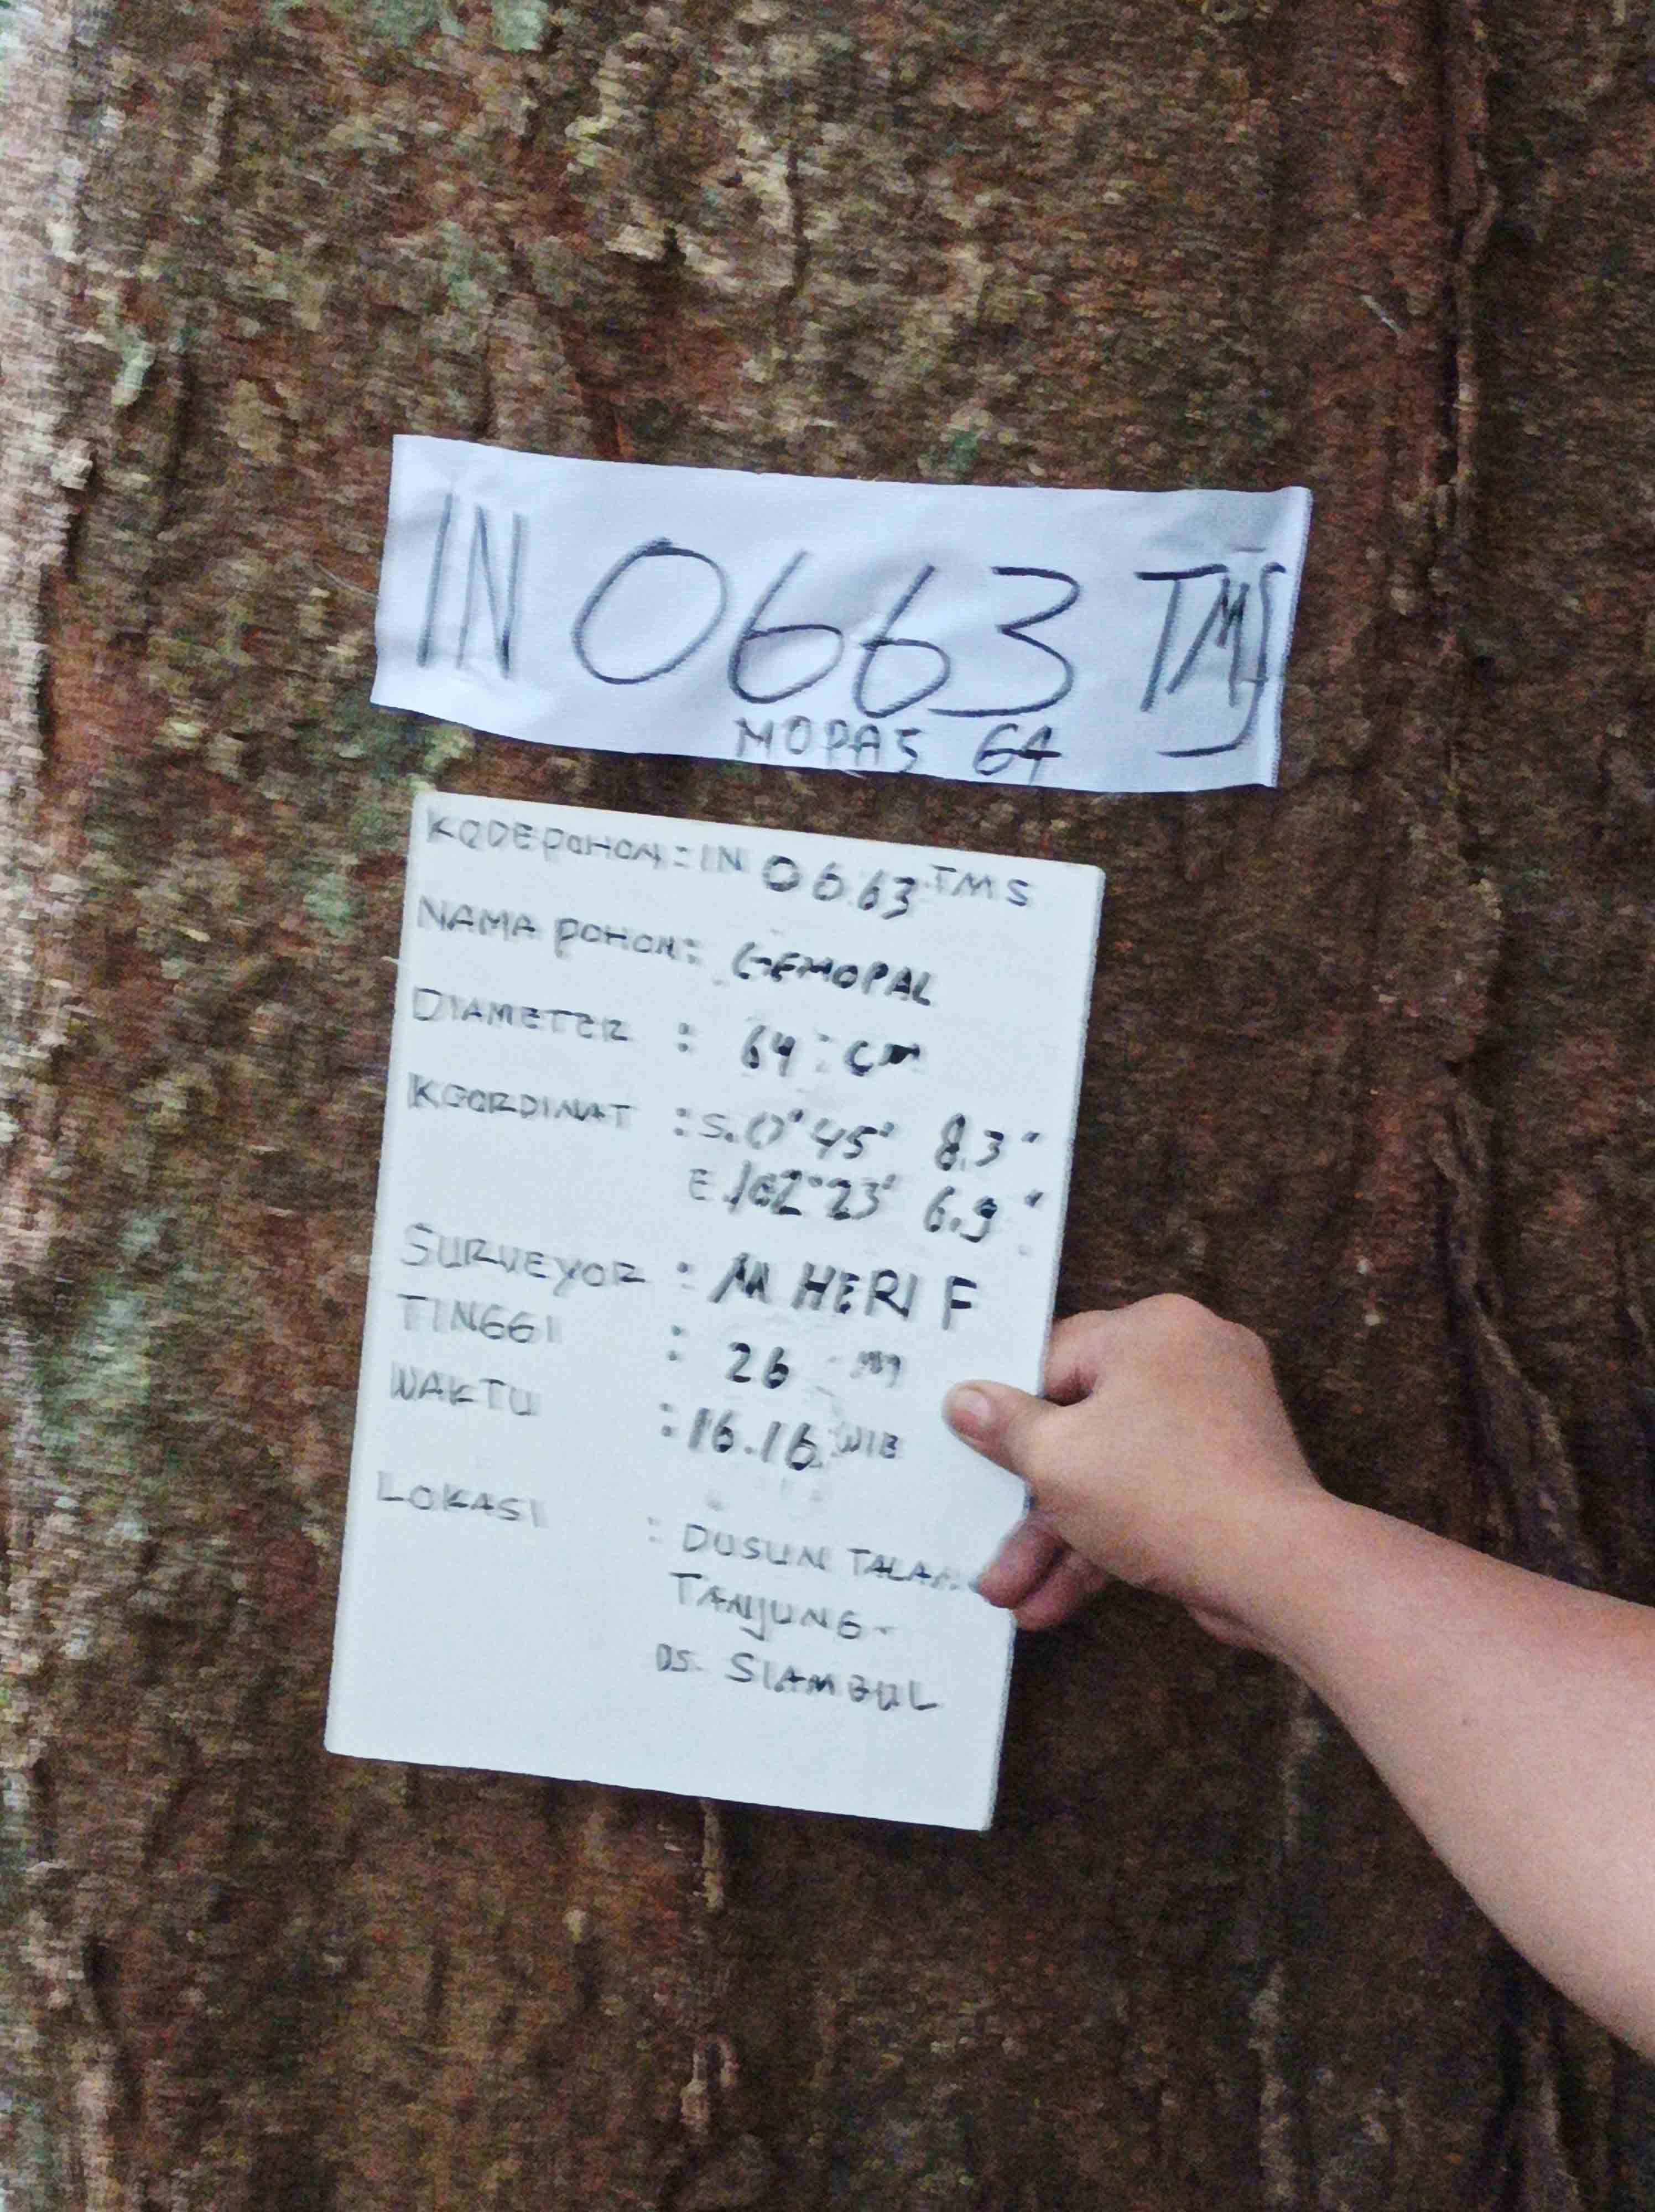 IN 0663 TMS
MOPAS 64
KODE POHON : IN 0663 TMS
NAMA POHON : GEMOPAL
DIAMETER : 64 : CM
KOORDINAT : S. 0° 45' 8.3"
E. 102° 23' 6.9"
SURVEYOR : M HERI F
TINGGI : 26 M
WAKTU : 16.16 WIB
LOKASI : DUSUN
TANJUNG -
DS. SIAMBUL